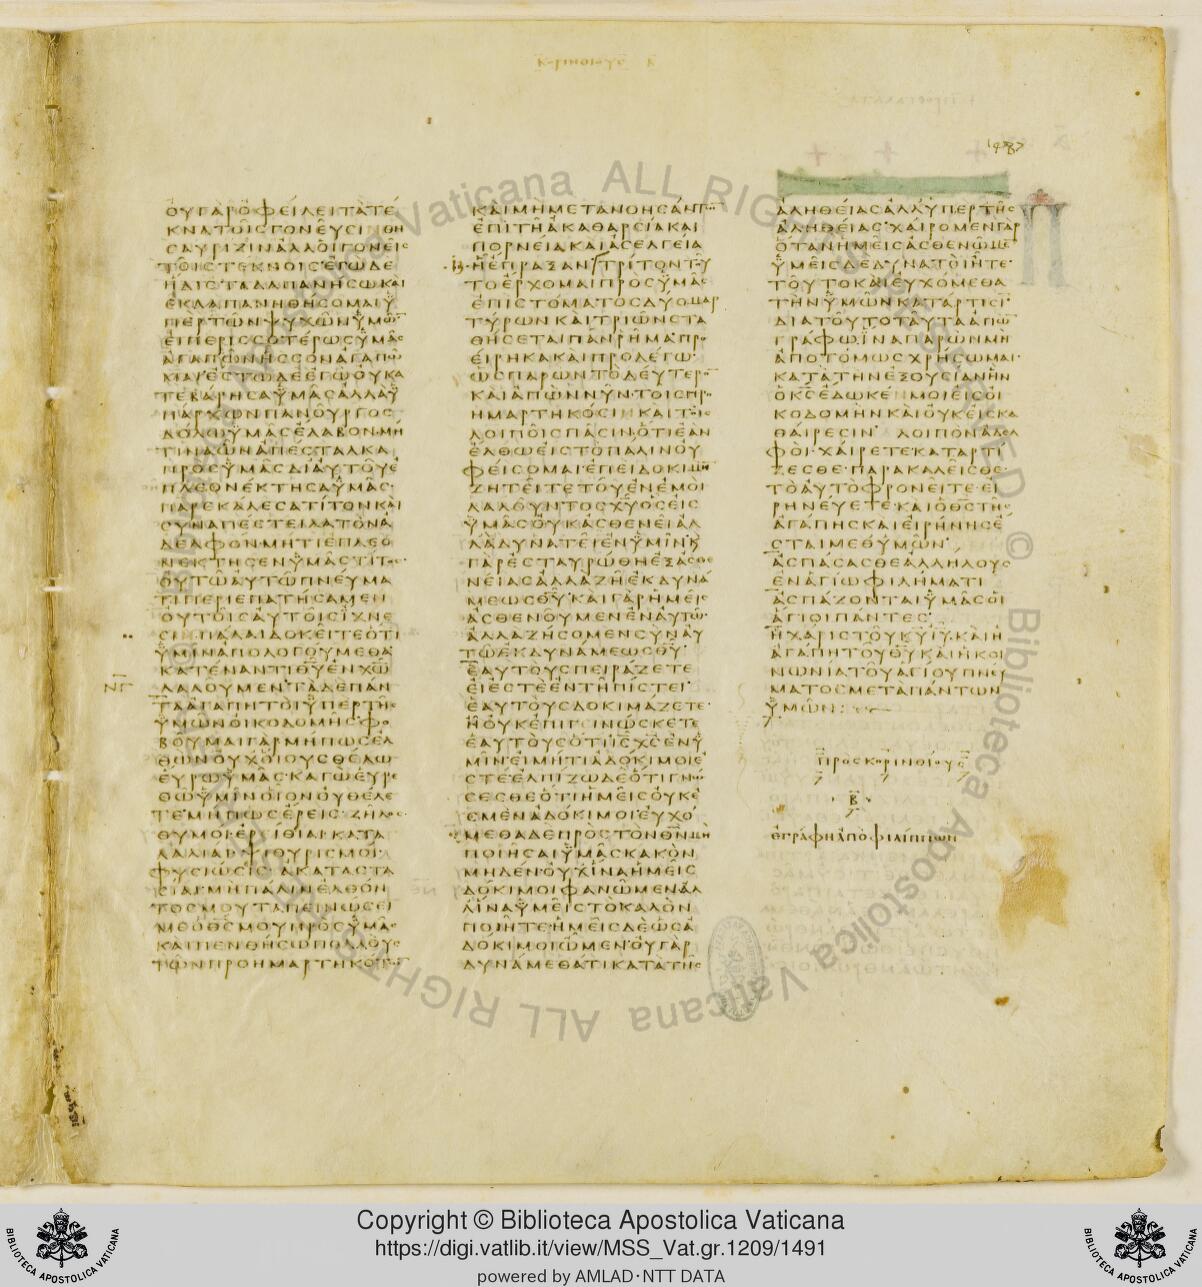 ΚΟΡΙΝΘΙΟΥϹ Β
ΟΥΓΑΡΟΦΕΙΛΕΙΤΑΤΕ
ΚΝΑΤΟΙϹΓΟΝΕΥϹΙΝΘΗ
ϹΑΥΡΙΖΙΝΑΛΛΟΙΓΟΝΕΙϹ
ΤΟΙϹΤΕΚΝΟΙϹΕΓΩΔΕ
ΗΔΙϹΤΑΔΑΠΑΝΗϹΩΚΑΙ
ΕΚΔΑΠΑΝΗΘΗϹΟΜΑΙΥ
ΠΕΡΤΩΝΨΥΧΩΝΥΜΩ̅
ΕΙΠΕΡΙϹϹΟΤΕΡΩϹΥΜΑϹ
ΑΓΑΠΩΗϹϹΟΝΑΓΑΠΩ
ΜΑΙ·ΕϹΤΩΔΕΕΓΩΟΥΚΑ
ΤΕΒΑΡΗϹΑΥΜΑϹΑΛΛΑΥ
ΠΑΡΧΩΝΠΑΝΟΥΡΓΟϹ
ΔΟΛΩΥΜΑϹΕΛΑΒΟΝ·ΜΗ
ΤΙΝΑΩΝΑΠΕϹΤΑΛΚΑ
ΠΡΟϹΥΜΑϹΔΙΑΥΤΟΥΕ
ΠΛΕΟΝΕΚΤΗϹΑΥΜΑϹ·
ΠΑΡΕΚΑΛΕϹΑΤΙΤΟΝΚΑΙ
ϹΥΝΑΠΕϹΤΕΙΛΑΤΟΝΑ
ΔΕΛΦΟΝ·ΜΗΤΙΕΠΛΕΟ
ΝΕΚΤΗϹΕΝΥΜΑϹΤΙΤΟϹ·
ΟΥΤΩΑΥΤΩΠΝΕΥΜΑ
ΤΙΠΕΡΙΕΠΑΤΗϹΑΜΕΝ
ΟΥΤΟΙϹΑΥΤΟΙϹΙΧΝΕ
ϹΙΝΠΑΛΑΙΔΟΚΕΙΤΕΟΤΙ
ΥΜΙΝΑΠΟΛΟΓΟΥΜΕΘΑ
ΚΑΤΕΝΑΝΤΙΘ̅Υ̅ΕΝΧ̅Ω̅
ΛΑΛΟΥΜΕΝ·ΤΑΔΕΠΑΝ
ΤΑΑΓΑΠΗΤΟΙΥΠΕΡΤΗϹ
ΥΜΩΝΟΙΚΟΔΟΜΗϹ·ΦΟ
ΒΟΥΜΑΙΓΑΡΜΗΠΩϹΕΛ
ΘΩΝΟΥΧΟΙΟΥϹΘΕΛΩ
ΕΥΡΩΥΜΑϹΚΑΓΩΕΥΡΕ
ΘΩΥΜΙΝΟΙΟΝΟΥΘΕΛΕ
ΤΕ·ΜΗΠΩϹΕΡΕΙϹ·ΖΗΛΟϹ·
ΘΥΜΟΙ·ΕΡΕΙΘΙΑΙ·ΚΑΤΑ
ΛΑΛΙΑΙ·ΨΙΘΥΡΙϹΜΟΙ·
ΦΥϹΙΩϹΙϹ·ΑΚΑΤΑϹΤΑ
ϹΙΑΙ·ΜΗΠΑΛΙΝΕΛΘΟΝ
ΤΟϹΜΟΥΤΑΠΕΙΝΩϹΕΙ
ΜΕΟΘ̅Ϲ̅ΜΟΥΠΡΟϹΥΜΑϹ
ΚΑΙΠΕΝΘΗϹΩΠΟΛΛΟΥϹ
ΤΩΝΠΡΟΗΜΑΡΤΗΚΟΤΩ̅
ΚΑΙΜΗΜΕΤΑΝΟΗϹΑΝΤΩ̅
ΕΠΙΤΗΑΚΑΘΑΡϹΙΑΚΑΙ
ΠΟΡΝΕΙΑΚΑΙΑϹΕΛΓΕΙΑ
ΗΕΠΡΑΞΑΝ ΤΡΙΤΟΝΤΟΥ
ΤΟΕΡΧΟΜΑΙΠΡΟϹΥΜΑϹ
ΕΠΙϹΤΟΜΑΤΟϹΔΥΟΜΑΡ
ΤΥΡΩΝΚΑΙΤΡΙΩΝϹΤΑ
ΘΗϹΕΤΑΙΠΑΝΡΗΜΑ·ΠΡΟ
ΕΙΡΗΚΑΚΑΙΠΡΟΛΕΓΩ·
ΩϹΠΑΡΩΝΤΟΔΕΥΤΕΡΟ̅
ΚΑΙΑΠΩΝΝΥΝ·ΤΟΙϹΠΡΟ
ΗΜΑΡΤΗΚΟϹΙΝΚΑΙΤΟΙϹ
ΛΟΙΠΟΙϹΠΑϹΙΝ·ΟΤΙΕΑΝ
ΕΛΘΩΕΙϹΤΟΠΑΛΙΝΟΥ
ΦΕΙϹΟΜΑΙ·ΕΠΕΙΔΟΚΙΜΗ̅
ΖΗΤΕΙΤΕΤΟΥΕΝΕΜΟΙ
ΛΑΛΟΥΝΤΟϹΧ̅Υ̅ΟϹΕΙϹ
ΥΜΑϹΟΥΚΑϹΘΕΝΕΙΑΛ
ΛΑΔΥΝΑΤΕΙΕΝΥΜΙΝ·Κ
ΓΑΡΕϹΤΑΥΡΩΘΗΕΞΑϹΘΕ
ΝΕΙΑϹΑΛΛΑΖΗΕΚΔΥΝΑ
ΜΕΩϹΘ̅Υ̅·ΚΑΙΓΑΡΗΜΕΙϹ
ΑϹΘΕΝΟΥΜΕΝΕΝΑΥΤΩ·
ΑΛΛΑΖΗϹΟΜΕΝϹΥΝΑΥ
ΤΩΕΚΔΥΝΑΜΕΩϹΘ̅Υ̅·
ΕΑΥΤΟΥϹΠΕΙΡΑΖΕΤΕ
ΕΙΕϹΤΕΕΝΤΗΠΙϹΤΕΙ·
ΕΑΥΤΟΥϹΔΟΚΙΜΑΖΕΤΕ·
ΗΟΥΚΕΠΙΓΕΙΝΩϹΚΕΤΕ
ΕΑΥΤΟΥϹΟΤΙΙ̅Ϲ̅Χ̅Ϲ̅ΕΝΥ
ΜΙΝ·ΕΙΜΗΤΙΑΔΟΚΙΜΟΙΕ
ϹΤΕ·ΕΛΠΙΖΩΔΕΟΤΙΓΝΩ
ϹΕϹΘΕΟΤΙΗΜΕΙϹΟΥΚΕ
ϹΜΕΝΑΔΟΚΙΜΟΙ·ΕΥΧΟ
ΜΕΘΑΔΕΠΡΟϹΤΟΝΘ̅Ν̅ΜΗ
ΠΟΙΗϹΑΙΥΜΑϹΚΑΚΟΝ
ΜΗΔΕΝ·ΟΥΧΙΝΑΗΜΕΙϹ
ΔΟΚΙΜΟΙΦΑΝΩΜΕΝΑΛ
ΛΙΝΑΥΜΕΙϹΤΟΚΑΛΟΝ
ΠΟΙΗΤΕ·ΗΜΕΙϹΔΕΩϹΑ
ΔΟΚΙΜΟΙΩΜΕΝ·ΟΥΓΑΡ
ΔΥΝΑΜΕΘΑΤΙΚΑΤΑΤΗϹ
ΑΛΗΘΕΙΑϹΑΛΛΥΠΕΡΤΗϹ
ΑΛΗΘΕΙΑϹ·ΧΑΙΡΟΜΕΝΓΑΡ
ΟΤΑΝΗΜΕΙϹΑϹΘΕΝΩΜΕ̅
ΥΜΕΙϹΔΕΔΥΝΑΤΟΙΗΤΕ·
ΤΟΥΤΟΚΑΙΕΥΧΟΜΕΘΑ
ΤΗΝΥΜΩΝΚΑΤΑΡΤΙϹΙ̅·
ΔΙΑΤΟΥΤΟΤΑΥΤΑΑΠΩ̅
ΓΡΑΦΩ·ΙΝΑΠΑΡΩΝΜΗ
ΑΠΟΤΟΜΩϹΧΡΗϹΩΜΑΙ·
ΚΑΤΑΤΗΝΕΞΟΥϹΙΑΝΗΝ
ΟΚ̅Ϲ̅ΕΔΩΚΕΝΜΟΙΕΙϹΟΙ
ΚΟΔΟΜΗΝΚΑΙΟΥΚΕΙϹΚΑ
ΘΑΙΡΕϹΙΝ· ΛΟΙΠΟΝΑΔΕΛ
ΦΟΙ·ΧΑΙΡΕΤΕ·ΚΑΤΑΡΤΙ
ΖΕϹΘΕ·ΠΑΡΑΚΑΛΕΙϹΘΕ·
ΤΟΑΥΤΟΦΡΟΝΕΙΤΕ·ΕΙ
ΡΗΝΕΥΕΤΕ·ΚΑΙΟΘ̅Ϲ̅ΤΗϹ
ΑΓΑΠΗϹΚΑΙΕΙΡΗΝΗϹΕ
ϹΤΑΙΜΕΘΥΜΩΝ·
ΑϹΠΑϹΑϹΘΕΑΛΛΗΛΟΥϹ
ΕΝΑΓΙΩΦΙΛΗΜΑΤΙ
ΑϹΠΑΖΟΝΤΑΙΥΜΑϹΟΙ
ΑΓΙΟΙΠΑΝΤΕϹ·
ΗΧΑΡΙϹΤΟΥΚ̅Υ̅Ι̅Υ̅·ΚΑΙΗ
ΑΓΑΠΗΤΟΥΘ̅Υ̅ΚΑΙΗΚΟΙ
ΝΩΝΙΑΤΟΥΑΓΙΟΥΠΝΕΥ
ΜΑΤΟϹΜΕΤΑΠΑΝΤΩΝ
ΥΜΩΝ:
ΠΡΟϹΚΟΡΙΝΘΙΟΥϹ
Β
ΕΓΡΑΦΗΑΠΟΦΙΛΙΠΠΩΝ
ALL RIGHTS RESERVED © Biblioteca Apostolica Vaticana
Copyright © Biblioteca Apostolica Vaticana
https://digi.vatlib.it/view/MSS_Vat.gr.1209/1491
powered by AMLAD·NTT DATA
BIBLIOTECA APOSTOLICA VATICANA
BIBLIOTECA APOSTOLICA VATICANA